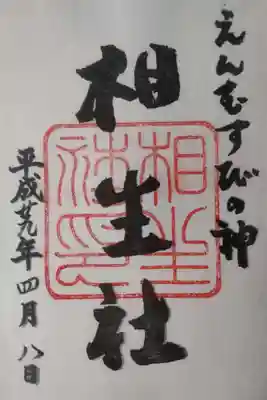 えんむすびの神
相生社
相生社印
平成廿九年四月八日